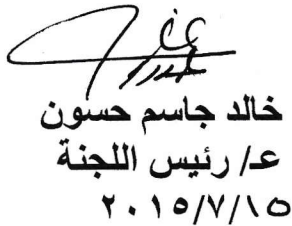 خالد جاسم حسون
عـ/ رئيس اللجنة
٢٠١٥/٧/١٥